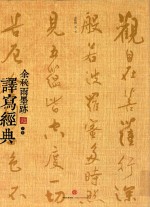 觀自在菩薩行深
般若波羅蜜多時照
見五蘊皆空度一切
苦厄
色不
余秋雨墨跡
譯寫經典